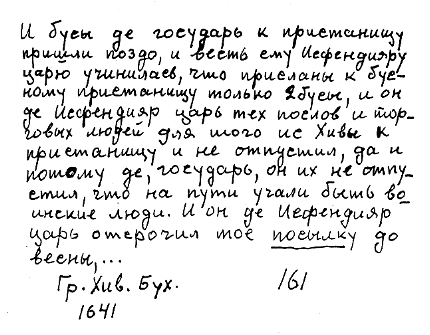 И бусы де государь к пристанищу
пришли поздо, и весть ему Исфендияру
царю учинилась, что присланы к бус-
ному пристанищу только 2 бусы, и он
де Исфендияр царь тех послов и тор-
говых людей для того ис Хивы к
пристанищу и не отпустил, да и
потому де, государь, он их не отпу-
стил, что на пути учали быть во-
инские люди. И он де Исфендияр
царь отсрочил тое посылку до
весны,...
Гр. Хив. Бух. 161
1641